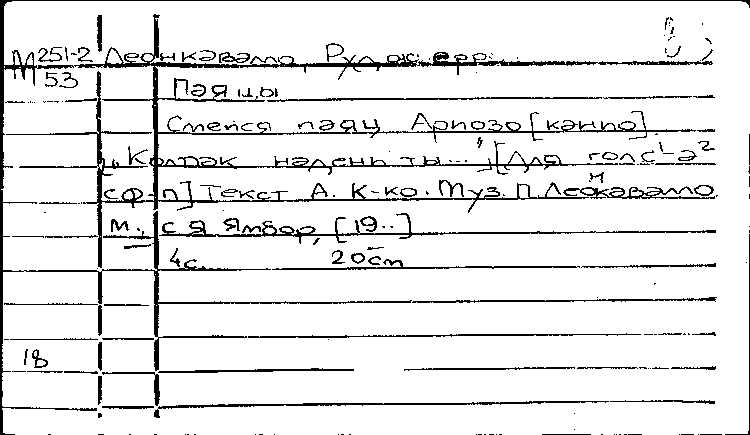 М 251-2 Леонкавалло, Руджерр...
53
Паяцы
Смейся паяц Ариозо [канио].
[„Колпак надень ты...", [Для голс¹-а²
с ф-п] Текст А. К-ко. Муз. П. Леонкавалло
М., С Я Ямбор, [19..]
4с. 20см
18